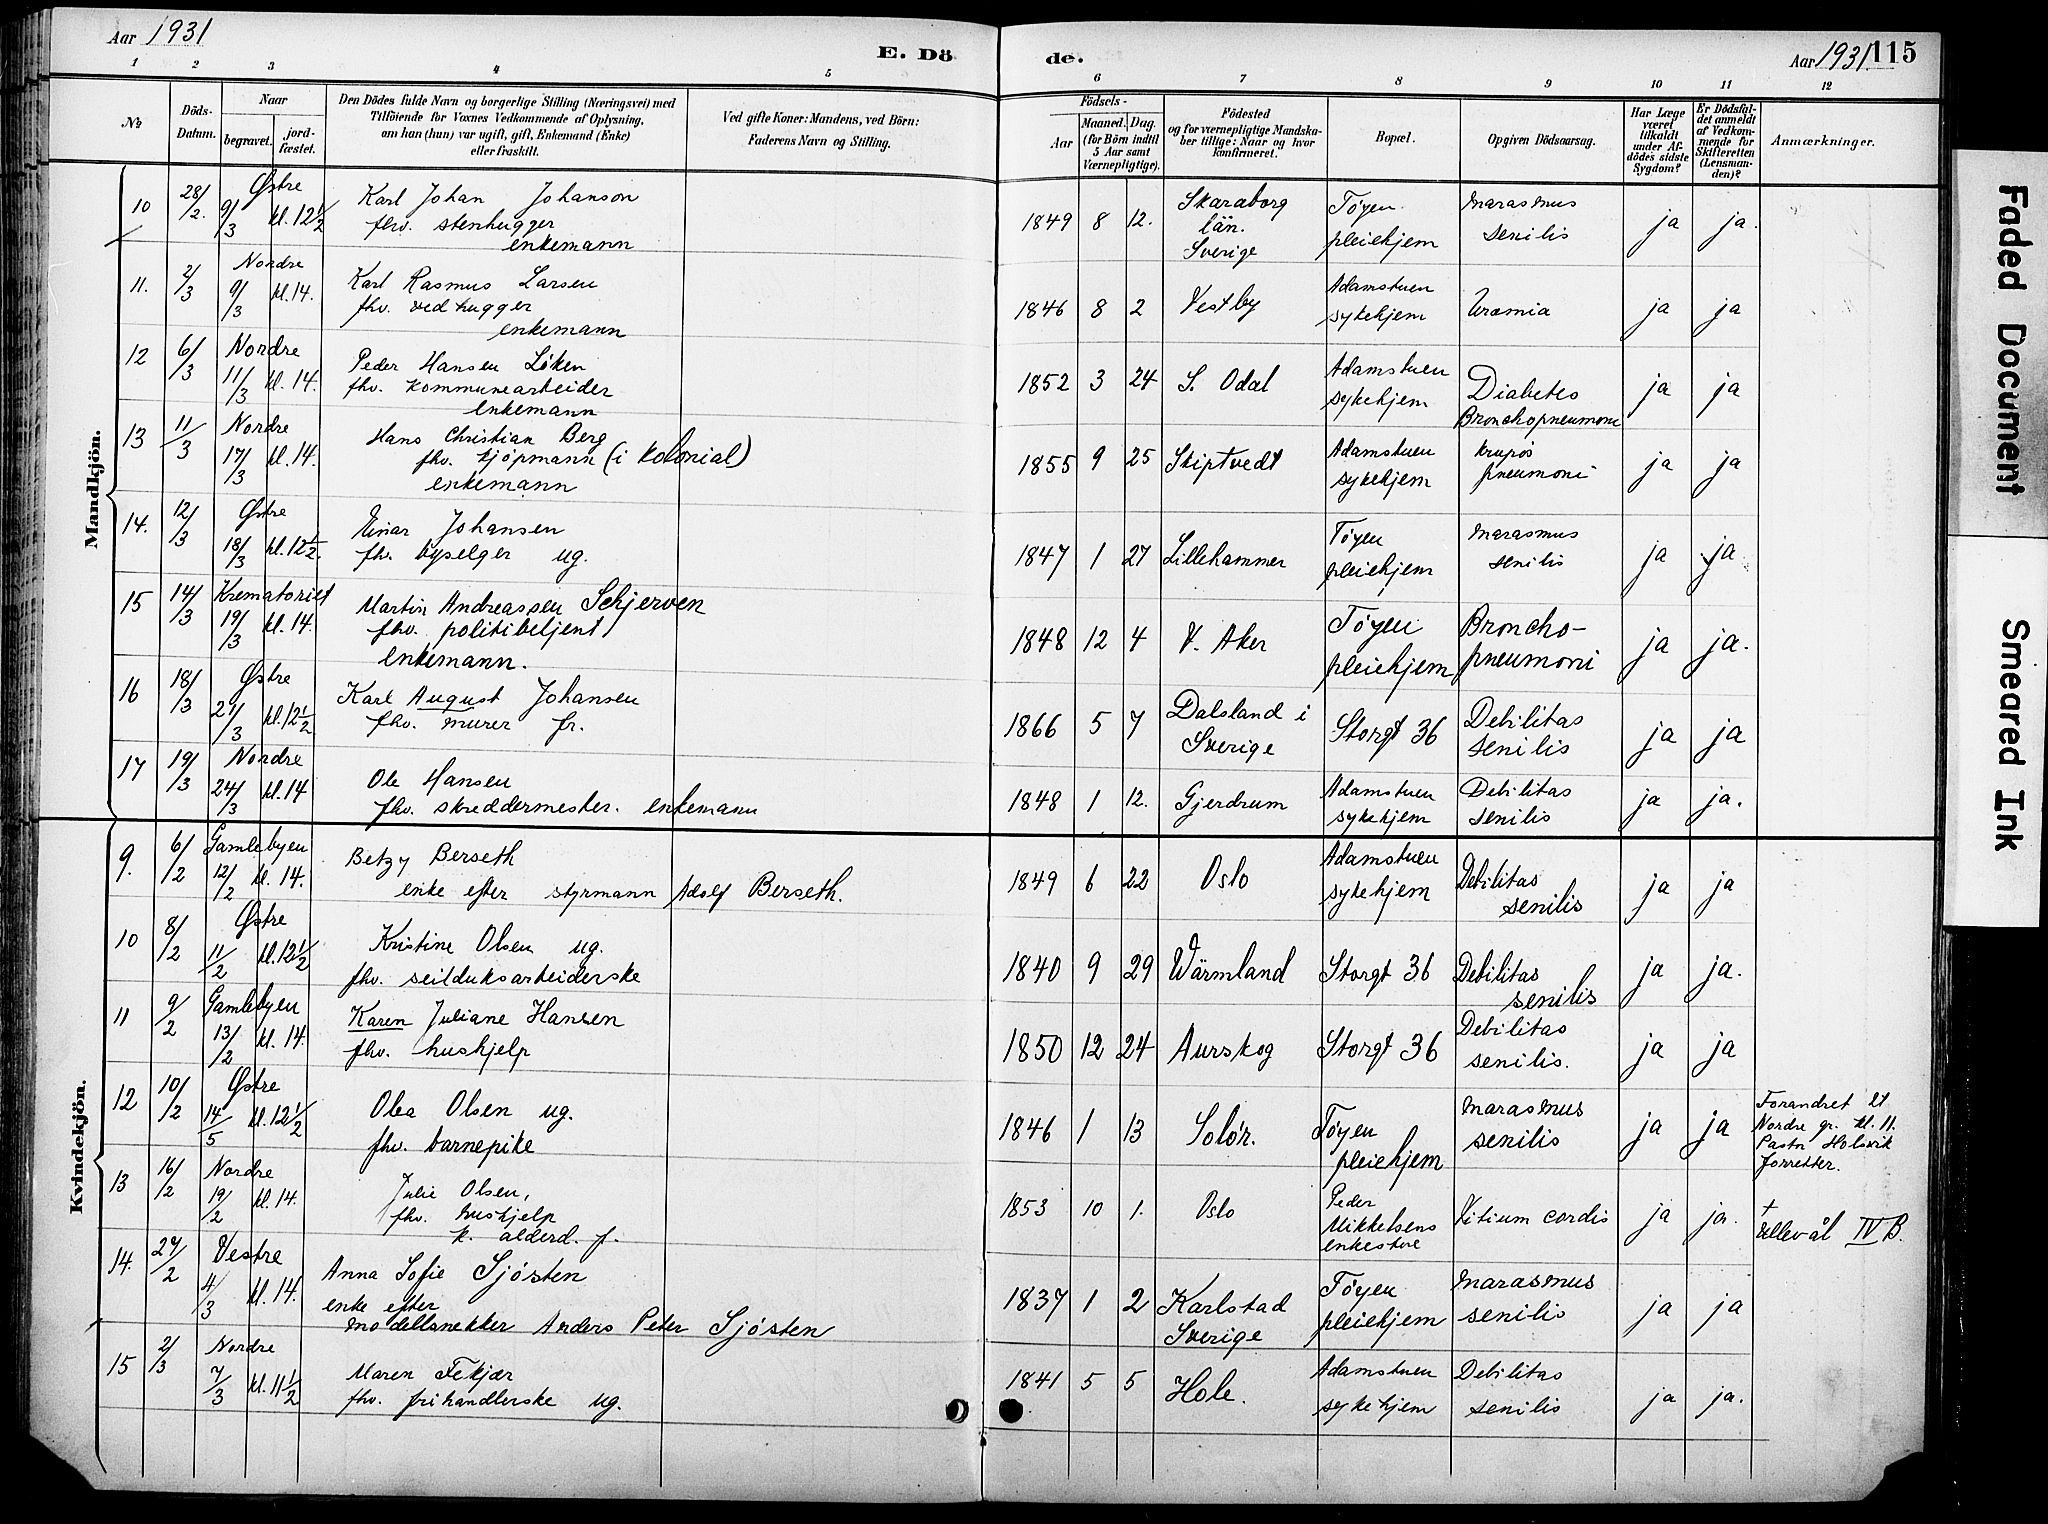 Aar 1931
E. Dö
de.
Aar 1931. 115
1 2 3 4 5 6 7 8 9 10 11 12
№
Döds-
Datum.
Naar
begravet.
jord-
fæstet.
Den Dödes fulde Navn og borgerlige Stilling (Næringsvei) med
Tilföiende for Voxnes Vedkommende af Oplysning,
om han (hun) var ugift, gift, Enkemand (Enke)
eller fraskilt.
Ved gifte Koner: Mandens, ved Börn:
Faderens Navn og Stilling.
Födsels-
Aar
Maaned. Dag.
(for Börn indtil
5 Aar samt
Værnepligtige).
Födested
og for værnepligtige Mandska-
ber tillige: Naar og hvor
konfirmeret.
Bopæl.
Opgiven Dödsaarsag.
Har Læge
været
tilkaldt
under Af-
dödes sidste
Sygdom?
Er Dödsfal-
det anmeldt
af Vedkom-
mende for
Skifteretten
(Lensman-
den)?
Anmærkninger.
Mandkjön.
10 28/2. Østre 9/3 kl. 12½ Karl Johan Johanson
fhv. stenhugger
enkemann
1849 8 12. Skaraborg
län.
Sverige
Tøyen
pleiehjem
Marasmus
senilis
ja ja.
11. 2/3 Nordre 9/3 kl. 14. Karl Rasmus Larsen
fhv. vedhugger
enkemann
1846 8 2 Vestby
Adamstuen
sykehjem
Uræmia
ja ja
12 6/3 Nordre 11/3 kl. 14. Peder Hansen Løken
fhv. kommunearbeider
enkemann
1852 3 24 S. Odal
Adamstuen
sykehjem
Diabetes
Bronchopneumoni
ja ja
13 11/3 Nordre 17/3 kl. 14. Hans Christian Berg
fhv. kjøpmann (i kolonial)
enkemann
1855 9 25 Skiptvedt
Adamstuen
sykehjem
krupøs
pneumoni
ja ja
14. 12/3 Østre 18/3 kl. 12½. Einar Johansen
fhv. byselger ug.
1847 1 27 Lillehammer
Tøyen
pleiehjem
Marasmus
senilis
ja ja
15 14/3 Krematoriet 19/3 kl. 14. Martin Andreassen Schjerven
fhv. politibetjent
enkemann.
1848 12 4 V. Aker
Tøyen
pleiehjem
Broncho-
pneumoni
ja ja.
16 18/3 Østre 21/3 kl. 12½ Karl August Johansen
fhv. murer fr.
1866 5 7 Dalsland i
Sverige
Storgt 36
Debilitas
senilis
ja ja
17 19/3 Nordre 24/3 kl. 14 Ole Hansen
fhv. skreddermester. enkemann
1848 1 12. Gjerdrum
Adamstuen
sykehjem
Debilitas
senilis
ja ja.
Kvindekjön.
9. 6/2 Gamlebyen 12/2 kl. 14. Betzy Berseth
enke efter styrmann Adolf Berseth.
1849 6 22 Oslo
Adamstuen
sykehjem
Debilitas
senilis
ja ja
10 8/2 Østre 11/2 kl. 12½ Kristine Olsen ug.
fhv. seilduksarbeiderske
1840 9 29 Wärmland
Storgt 36
Debilitas
senilis
ja ja.
11 9/2 Gamlebyen 13/2 kl. 14. Karen Juliane Hansen
fhv. hushjelp
1850 12 24 Aurskog
Storgt 36
Debilitas
senilis.
ja ja
12 10/2 Østre 14/5 kl. 12½ Olea Olsen ug.
fhv. barnepike
1846 1 13 Solør.
Tøyen
pleiehjem
Marasmus
senilis
ja ja
Forandret til
Nordre gr. kl. 11.
Pastor Holsvik
forretter.
13 16/2 Nordre 19/2 kl. 14. Julie Olsen,
fhv. hushjelp
k. alderd. f.
1853 10 1. Oslo
Peder
Mikkelsens
enkestove
Vitium cordis
ja ja.
+
Ullevål IV B.
14. 27/2 Vestre 4/3 kl. 14. Anna Sofie Sjøsten
enke efter
modellsnekker Anders Peter Sjøsten
1837 1 2 Karlstad
Sverige
Tøyen
pleiehjem
Marasmus
senilis
ja ja
15 2/3 Nordre 7/3 kl. 11½ Maren Fekjær
fhv. frihandlerske ug.
1841 5 5 Hole.
Adamstuen
sykehjem
Debilitas
senilis
ja ja.
Faded Document
Smeared Ink